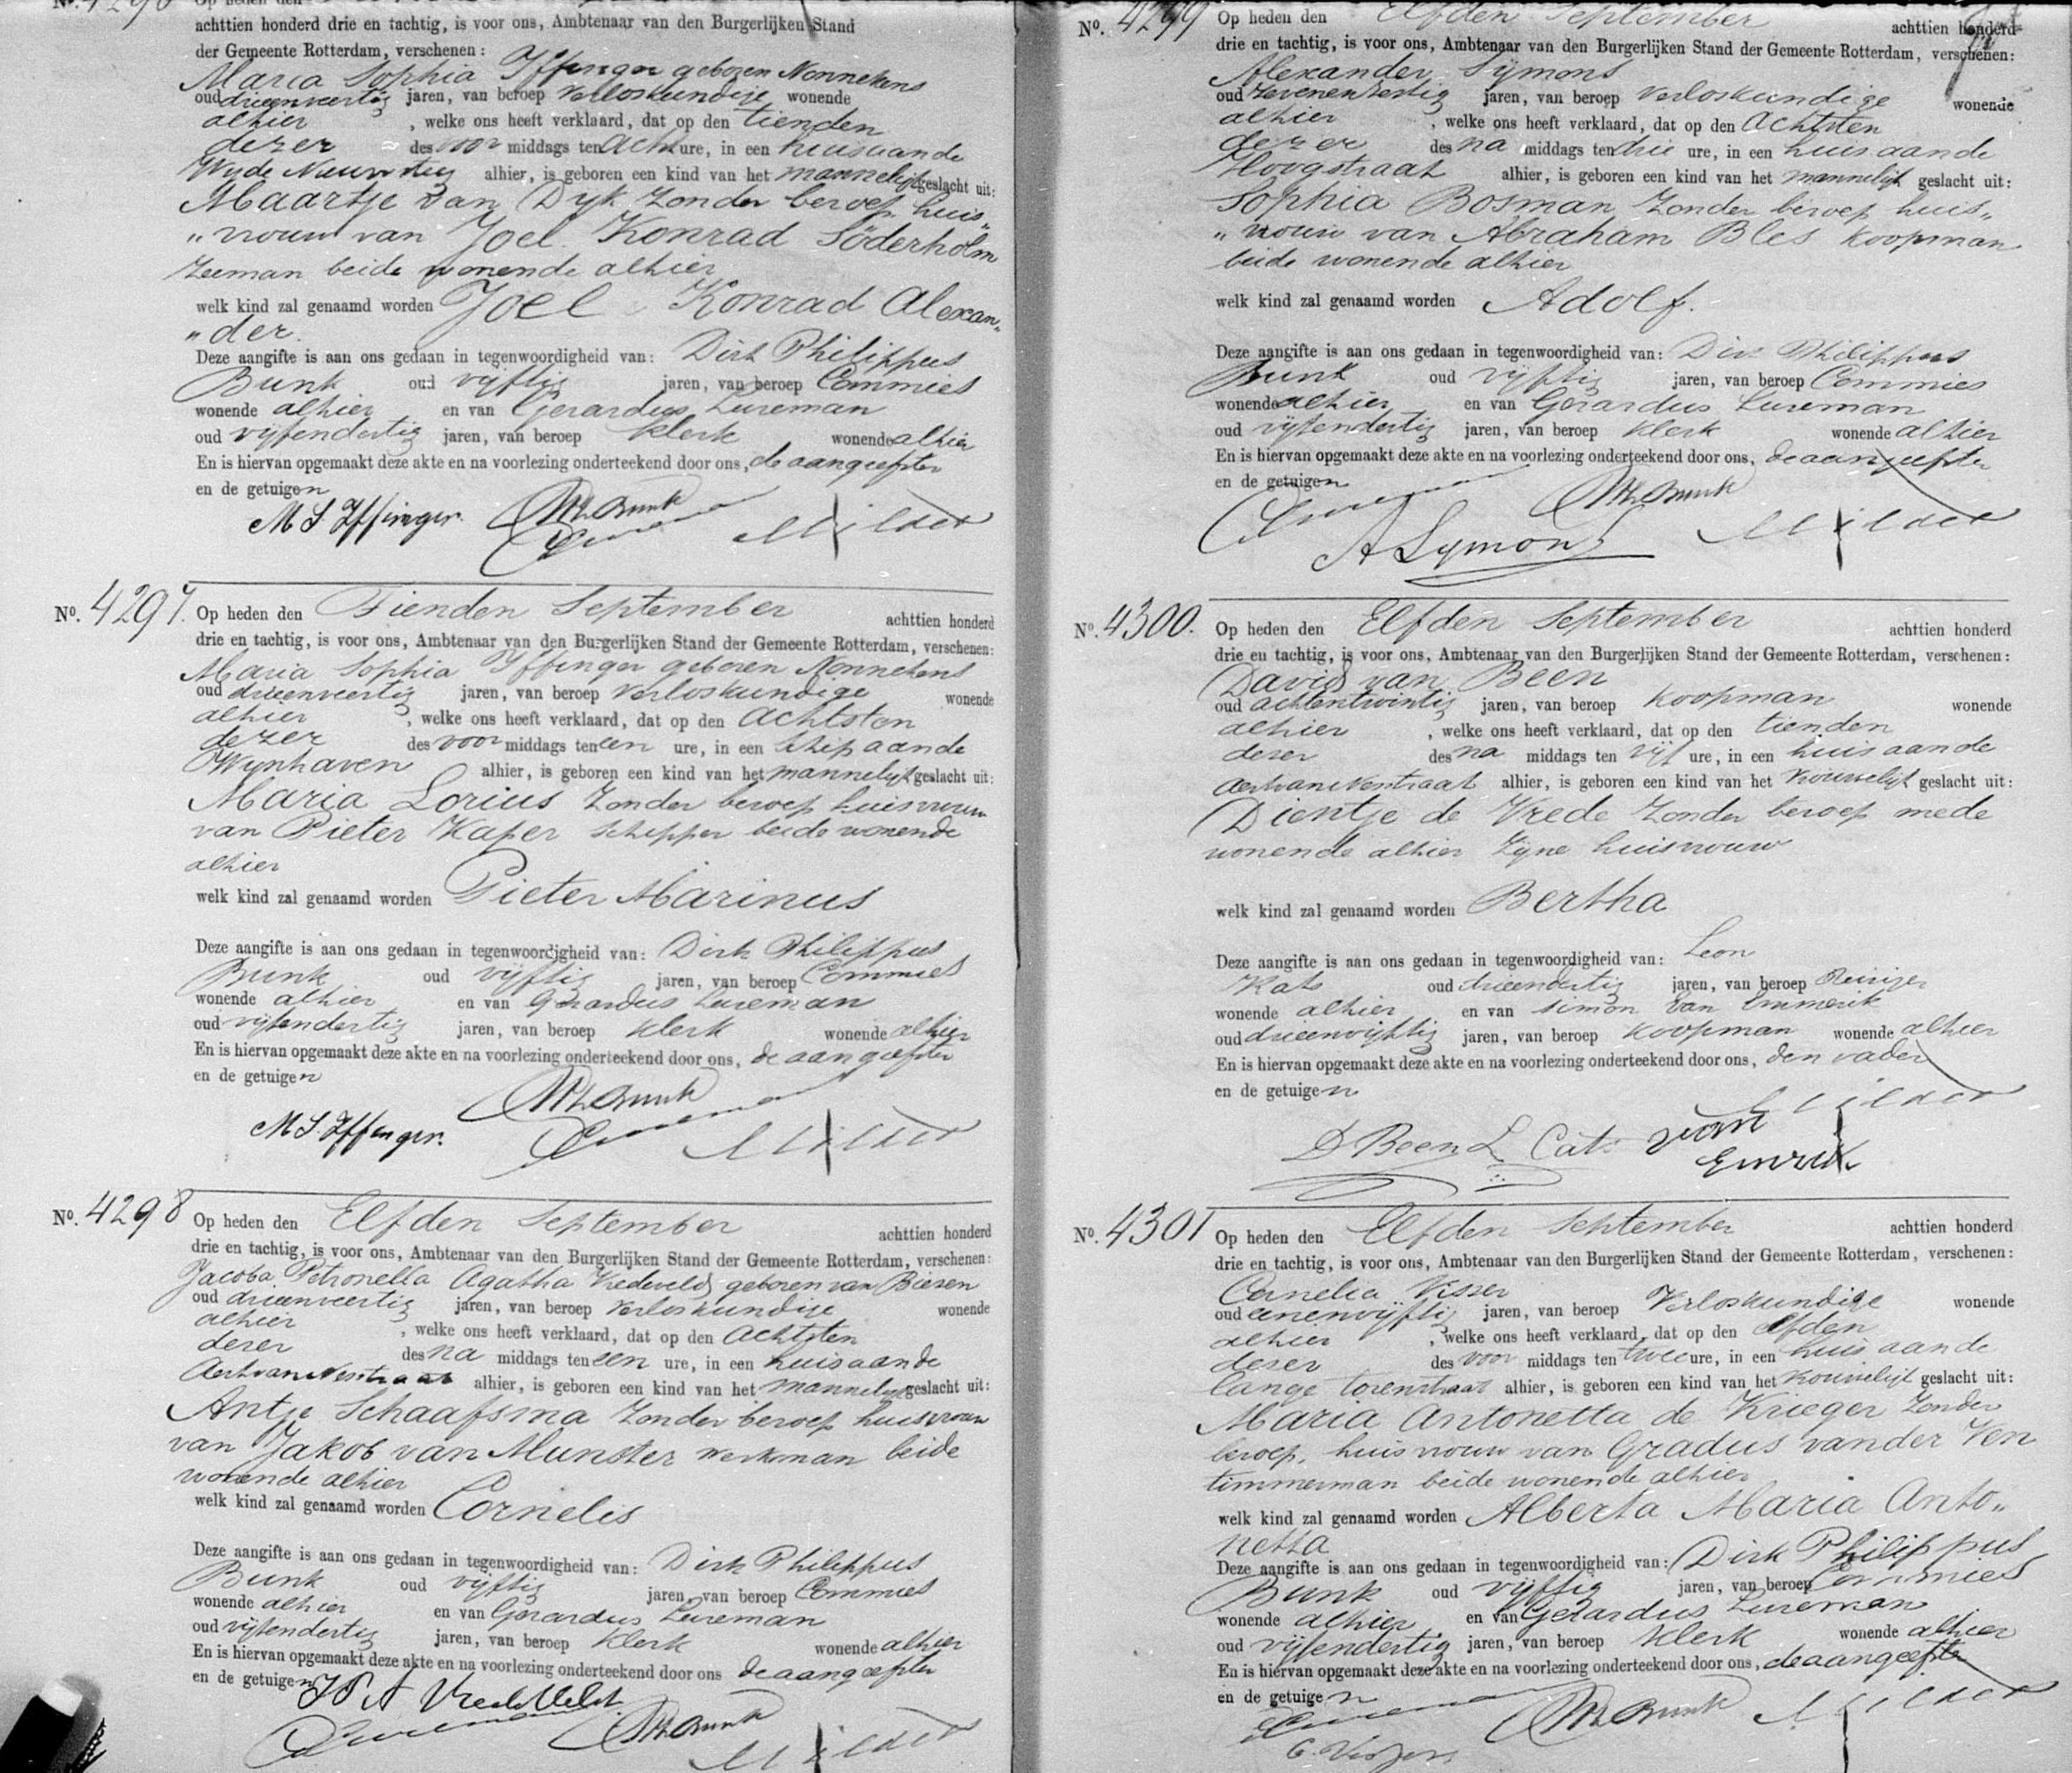 achttien honderd drie en tachtig, is voor ons, Ambtenaar van den Burgerlijken Stand
der Gemeente Rotterdam, verschenen:
Maria Sophia Yffinger geboren Nonnekens
oud drieenveertig jaren, van beroep Verloskundige wonende
alhier, welke ons heeft verklaard, dat op den tienden
dezer des voor middags ten acht ure, in een huis aan de
Wijde Nieuwsteeg alhier, is geboren een kind van het mannelijk geslacht uit:
Maartje van Dijk Zonder beroep huis„
„vrouw van Joel Konrad Söderholm
Zeeman beide wonende alhier
welk kind zal genaamd worden Joel Konrad Alexan„
„der.
Deze aangifte is aan ons gedaan in tegenwoordigheid van: Dirk Philippus
Bunk oud vijftig jaren, van beroep Commies
wonende alhier en van Gerardus Lureman
oud vijfendertig jaren, van beroep klerk wonende alhier
En is hiervan opgemaakt deze akte en na voorlezing onderteekend door ons, de aangeefster
en de getuigen
M S Yffinger. Bunk
No. 4297. Op heden den Tienden September achttien honderd
drie en tachtig, is voor ons, Ambtenaar van den Burgerlijken Stand der Gemeente Rotterdam, verschenen:
Maria Sophia Yffinger geboren Nonnekens
oud drieenveertig jaren, van beroep Verloskundige wonende
alhier, welke ons heeft verklaard, dat op den Achtsten
dezer des voor middags ten een ure, in een Schip aan de
Wijnhaven alhier, is geboren een kind van het mannelijk geslacht uit:
Maria Lorius Zonder beroep huisvrouw
van Pieter Kaper Schipper beide wonende
alhier
welk kind zal genaamd worden Pieter Marinus
Deze aangifte is aan ons gedaan in tegenwoordigheid van: Dirk Philippus
Bunk oud vijftig jaren, van beroep Commies
wonende alhier en van Gerardus Lureman
oud vijfendertig jaren, van beroep klerk wonende alhier
En is hiervan opgemaakt deze akte en na voorlezing onderteekend door ons, de aangeefster
en de getuigen
Bunk
M S. Yffinger.
No. 4298 Op heden den Elfden September achttien honderd
drie en tachtig, is voor ons, Ambtenaar van den Burgerlijken Stand der Gemeente Rotterdam, verschenen:
Jacoba Petronella Agatha Vredeveld geboren van Biesen
oud drieenveertig jaren, van beroep Verloskundige wonende
alhier, welke ons heeft verklaard, dat op den Achtsten
dezer des na middags ten een ure, in een huis aan de
Aert van Nesstraat alhier, is geboren een kind van het mannelijk geslacht uit:
Antje Schaafsma Zonder beroep huisvrouw
van Jakob van Munster werkman beide
wonende alhier
welk kind zal genaamd worden Cornelis
Deze aangifte is aan ons gedaan in tegenwoordigheid van: Dirk Philippus
Bunk oud vijftig jaren, van beroep Commies
wonende alhier en van Gerardus Lureman
oud vijfendertig jaren, van beroep klerk wonende alhier
En is hiervan opgemaakt deze akte en na voorlezing onderteekend door ons de aangeefster
en de getuigen
Bunk
No. 4299 Op heden den Elfden September achttien honderd
drie en tachtig, is voor ons, Ambtenaar van den Burgerlijken Stand der Gemeente Rotterdam, verschenen:
Alexander Symons
oud zevenenzestig jaren, van beroep Verloskundige wonende
alhier, welke ons heeft verklaard, dat op den Achtsten
dezer des na middags ten drie ure, in een huis aan de
Hoogstraat alhier, is geboren een kind van het mannelijk geslacht uit:
Sophia Bosman Zonder beroep huis„
„vrouw van Abraham Bles Koopman
beide wonende alhier
welk kind zal genaamd worden Adolf.
Deze aangifte is aan ons gedaan in tegenwoordigheid van: Dirk Philippus
Bunk oud vijftig jaren, van beroep Commies
wonende alhier en van Gerardus Lureman
oud vijfendertig jaren, van beroep klerk wonende alhier
En is hiervan opgemaakt deze akte en na voorlezing onderteekend door ons, de aangeefster
en de getuigen
Bunk
A Symons
No. 4300. Op heden den Elfden September achttien honderd
drie en tachtig, is voor ons, Ambtenaar van den Burgerlijken Stand der Gemeente Rotterdam, verschenen:
David van Been
oud achtentwintig jaren, van beroep Koopman wonende
alhier, welke ons heeft verklaard, dat op den tienden
dezer des na middags ten vijf ure, in een huis aan de
Aert van Nesstraat alhier, is geboren een kind van het vrouwelijk geslacht uit:
Dientje de Vrede Zonder beroep mede
wonende alhier Zijne huisvrouw
welk kind zal genaamd worden Bertha
Deze aangifte is aan ons gedaan in tegenwoordigheid van: Leon
Kats oud drieendertig jaren, van beroep Reiziger
wonende alhier en van Simon van Emmerik
oud drieenvijftig jaren, van beroep Koopman wonende alhier
En is hiervan opgemaakt deze akte en na voorlezing onderteekend door ons, den vader
en de getuigen
D Been L Cats van
Emrik
No. 4301 Op heden den Elfden September achttien honderd
drie en tachtig, is voor ons, Ambtenaar van den Burgerlijken Stand der Gemeente Rotterdam, verschenen:
Cornelia Visser
oud eenenvijftig jaren, van beroep Verloskundige wonende
alhier, welke ons heeft verklaard, dat op den elfden
dezer des voor middags ten twee ure, in een huis aan de
Lange torenstraat alhier, is geboren een kind van het vrouwelijk geslacht uit:
Maria Antonetta de Krieger Zonder
beroep, huisvrouw van Gradus van der Ven
timmerman beide wonende alhier
welk kind zal genaamd worden Alberta Maria Anto„
netta
Deze aangifte is aan ons gedaan in tegenwoordigheid van: Dirk Philippus
Bunk oud vijftig jaren, van beroep Commies
wonende alhier en van Gerardus Lureman
oud vijfendertig jaren, van beroep klerk wonende alhier
En is hiervan opgemaakt deze akte en na voorlezing onderteekend door ons, de aangeefster
en de getuigen
Bunk